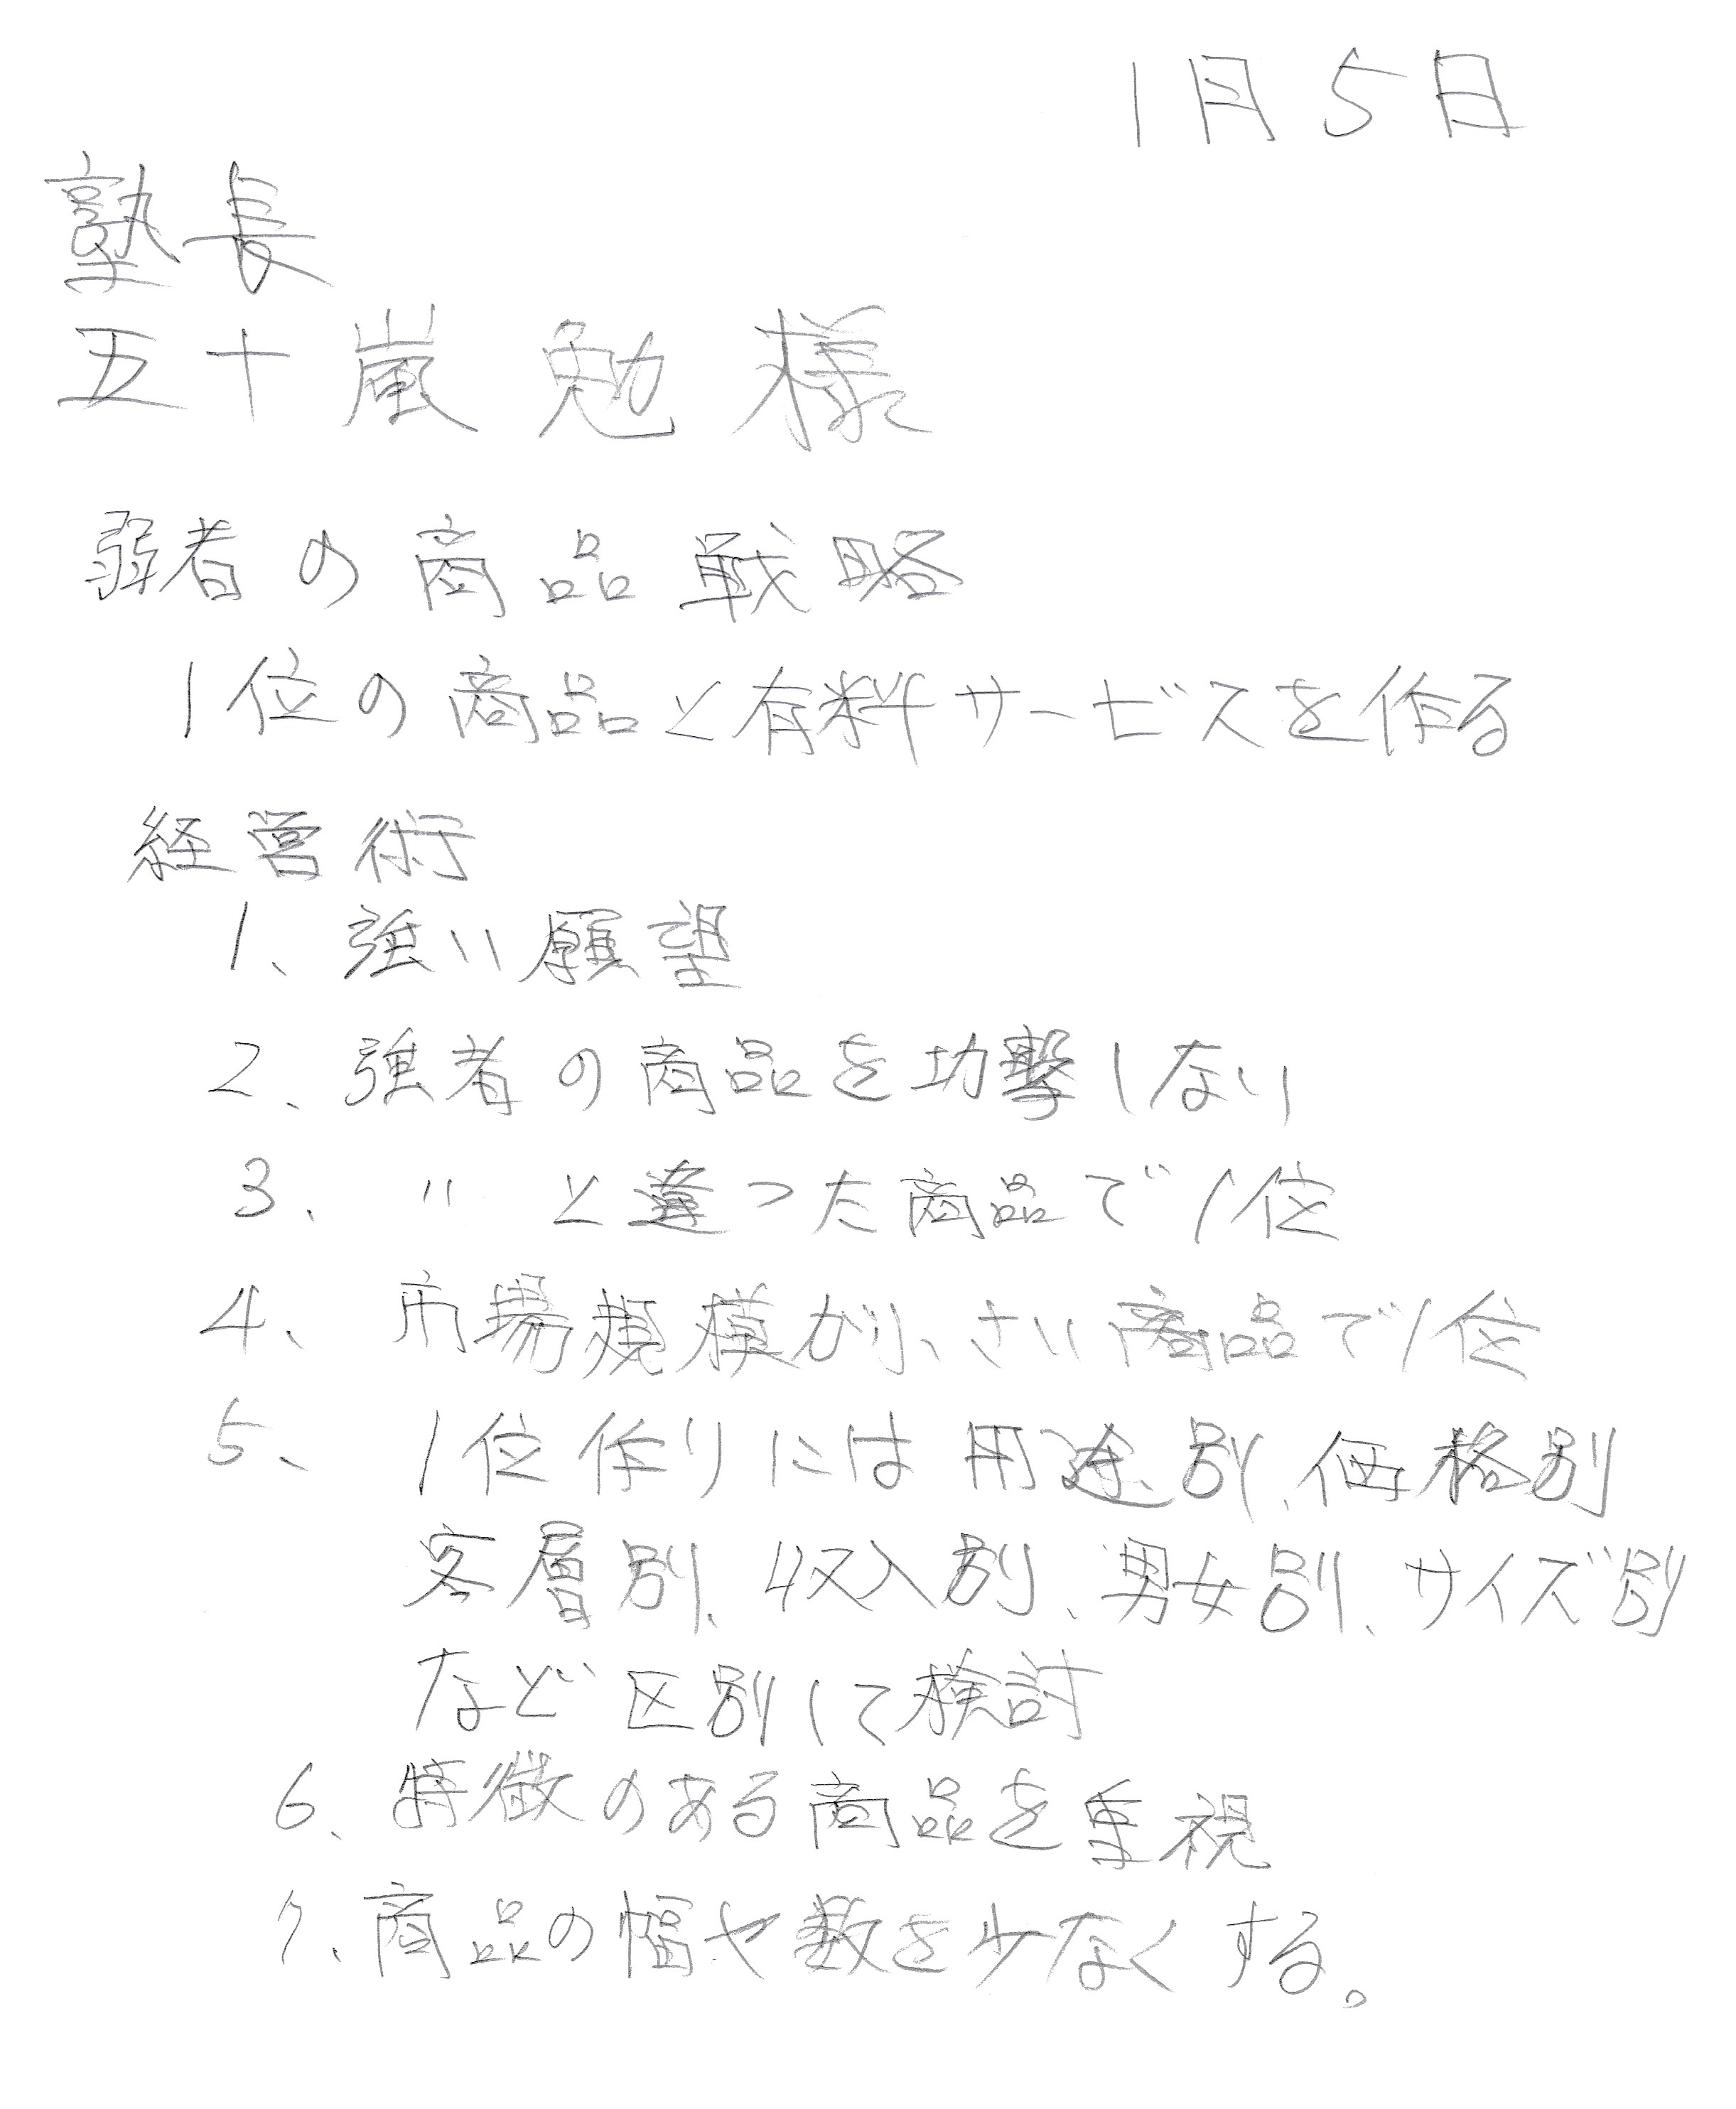 1月5日
塾長
五十嵐 勉 様
弱者の商品戦略
1位の商品と有料サービスを作る
経営術
1、強い願望
2、強者の商品を功撃しない
3、 〃 と違った商品で1位
4、市場規模が小さい商品で1位
5、1位作りには用途別、価格別
客層別、収入別、男女別、サイズ別
など区別して検討
6、特徴のある商品を重視
7、商品の幅や数を少なくする。